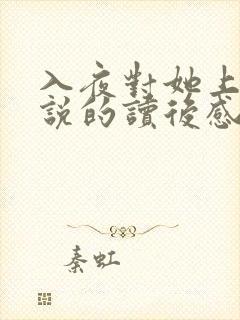 入夜對她上
說的讀後感
秦虹